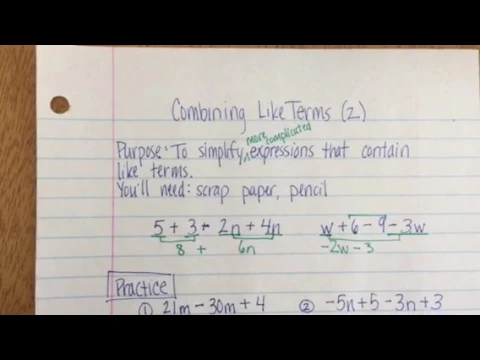 Combining Like Terms (2)
Purpose: To simplify more complicated expressions that contain
like terms.
You'll need: scrap paper, pencil
5 + 3 + 2n + 4n    w + 6 - 9 - 3w
8 + 6n    -2w - 3
Practice
① 21m - 30m + 4    ② -5n + 5 - 3n + 3